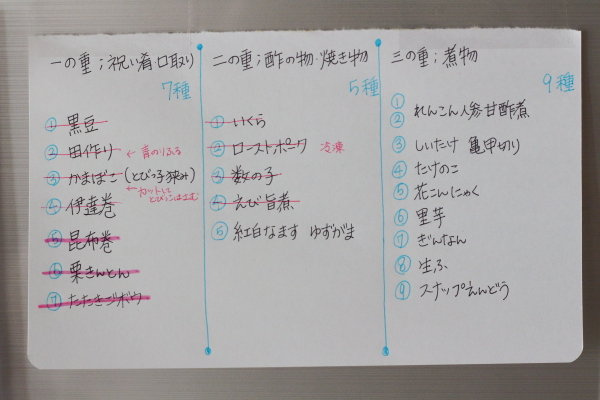 一の重；祝い肴口取り
7種
① 黒豆
② 田作り ← 青のりふる
③ かまぼこ（とびっ子狭み）
← カットして
とびっこはさむ
④ 伊達巻
⑤ 昆布巻
⑥ 栗きんとん
⑦ たたきゴボウ
二の重；酢の物・焼き物
5種
① いくら
② ローストポーク 冷凍
③ 数の子
④ えび旨煮
⑤ 紅白なます ゆずがま
三の重；煮物
9種
①
② れんこん人参甘酢煮
③ しいたけ 亀甲切り
④ たけのこ
⑤ 花こんにゃく
⑥ 里芋
⑦ ぎんなん
⑧ 生ふ
⑨ スナップえんどう